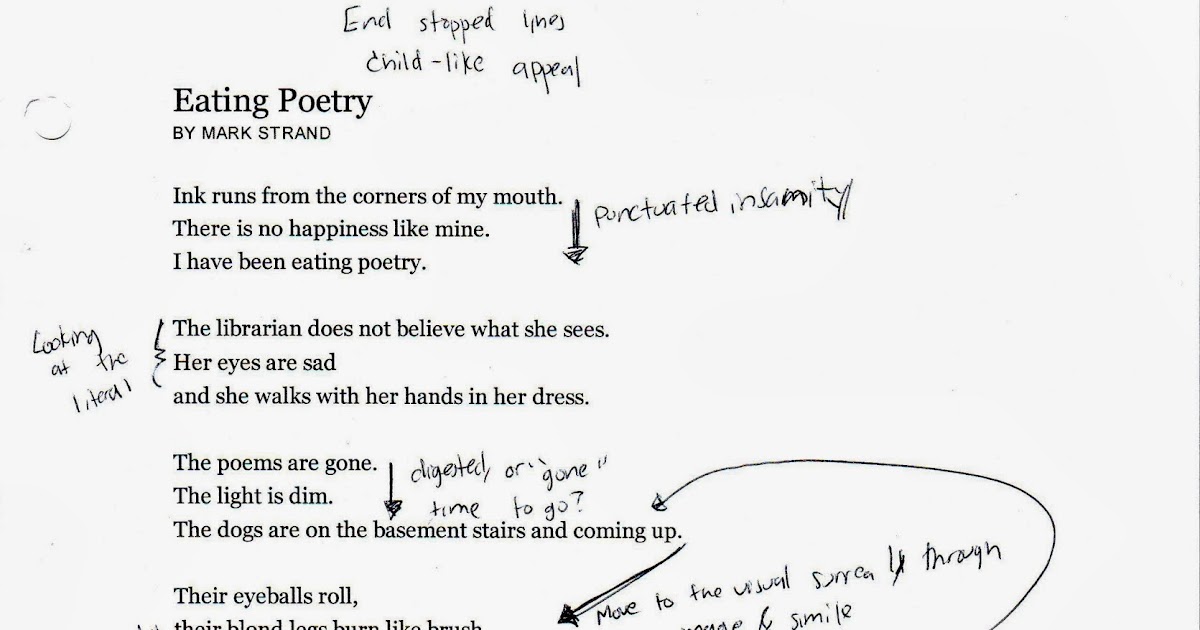 End stopped lines
child-like appeal
Eating Poetry
BY MARK STRAND
Ink runs from the corners of my mouth.
There is no happiness like mine.
I have been eating poetry.
punctuated insanity
The librarian does not believe what she sees.
Her eyes are sad
and she walks with her hands in her dress.
Looking
at the
literal
The poems are gone.
The light is dim.
The dogs are on the basement stairs and coming up.
digested, or "gone"
time to go?
Their eyeballs roll,
their blond legs burn like brush
Move to the visual surreally through
& simile